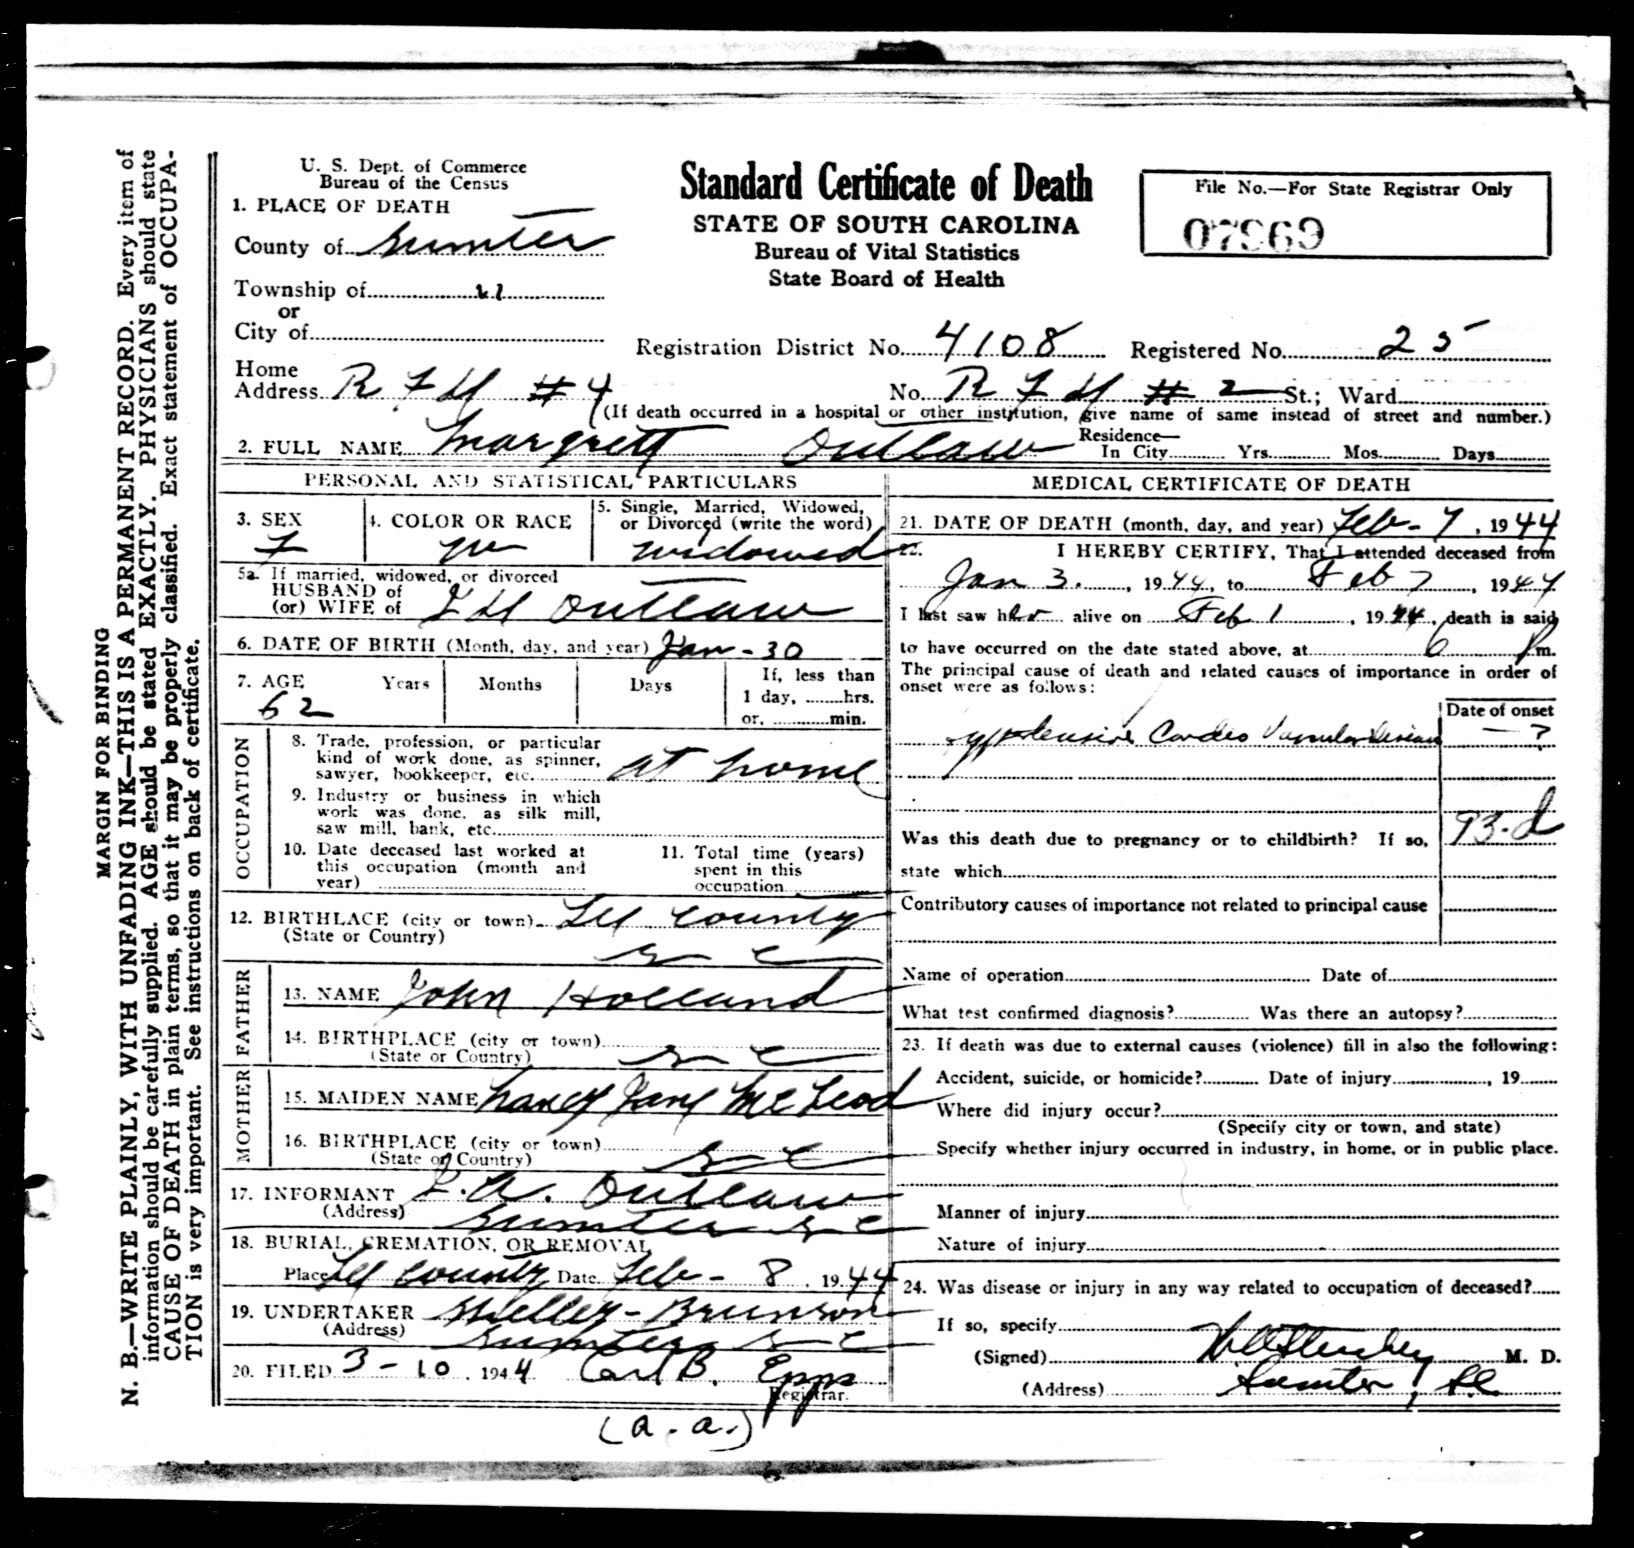 U. S. Dept. of Commerce
Bureau of the Census
Standard Certificate of Death
STATE OF SOUTH CAROLINA
Bureau of Vital Statistics
State Board of Health
File No.—For State Registrar Only
07969
1. PLACE OF DEATH
County of Sumter
Township of
or
City of
Registration District No. 4108 Registered No. 25
Home
Address #4 No. # 2 St.; Ward
(If death occurred in a hospital or other institution, give name of same instead of street and number.)
2. FULL NAME Margrett Outlaw
Residence—
In City Yrs. Mos. Days
PERSONAL AND STATISTICAL PARTICULARS
3. SEX
F
4. COLOR OR RACE
W
5. Single, Married, Widowed,
or Divorced (write the word)
widowed
5a. If married, widowed, or divorced
HUSBAND of
(or) WIFE of Outlaw
6. DATE OF BIRTH (Month, day, and year) Jan - 30
7. AGE Years Months Days
62
If, less than
1 day, hrs.
or, min.
OCCUPATION
8. Trade, profession, or particular
kind of work done, as spinner,
sawyer, bookkeeper, etc. at home
9. Industry or business in which
work was done, as silk mill,
saw mill, bank, etc.
10. Date deceased last worked at
this occupation (month and
year)
11. Total time (years)
spent in this
occupation
12. BIRTHLACE (city or town) Lee County
(State or Country)
S C
FATHER
13. NAME John Holland
14. BIRTHPLACE (city or town)
(State or Country) S C
MOTHER
15. MAIDEN NAME Nancy Jane McLeod
16. BIRTHPLACE (city or town)
(State or Country) S C
17. INFORMANT Outlaw
(Address) Sumter S C
18. BURIAL, CREMATION, OR REMOVAL
Place Lee County Date Feb - 8, 1944
19. UNDERTAKER Shelley - Brunson
(Address) Sumter S C
20. FILED 3-10, 1944 Carl B. Epps
Registrar.
(a.a.)
MEDICAL CERTIFICATE OF DEATH
21. DATE OF DEATH (month, day, and year) Feb - 7, 1944
22. I HEREBY CERTIFY, That I attended deceased from
Jan 3, 1944, to Feb 7, 1944
I last saw her alive on Feb 1, 1944, death is said
to have occurred on the date stated above, at 6 P m.
The principal cause of death and related causes of importance in order of
onset were as follows:
Date of onset
Hypertensive Cardio Vascular disease — ?
93-d
Was this death due to pregnancy or to childbirth? If so,
state which
Contributory causes of importance not related to principal cause
Name of operation Date of
What test confirmed diagnosis? Was there an autopsy?
23. If death was due to external causes (violence) fill in also the following:
Accident, suicide, or homicide? Date of injury , 19
Where did injury occur?
(Specify city or town, and state)
Specify whether injury occurred in industry, in home, or in public place.
Manner of injury
Nature of injury
24. Was disease or injury in any way related to occupation of deceased?
If so, specify
(Signed) M. D.
(Address) Sumter, S.C.
MARGIN FOR BINDING
N. B.—WRITE PLAINLY, WITH UNFADING INK—THIS IS A PERMANENT RECORD. Every item of
information should be carefully supplied. AGE should be stated EXACTLY. PHYSICIANS should state
CAUSE OF DEATH in plain terms, so that it may be properly classified. Exact statement of OCCUPA-
TION is very important. See instructions on back of certificate.